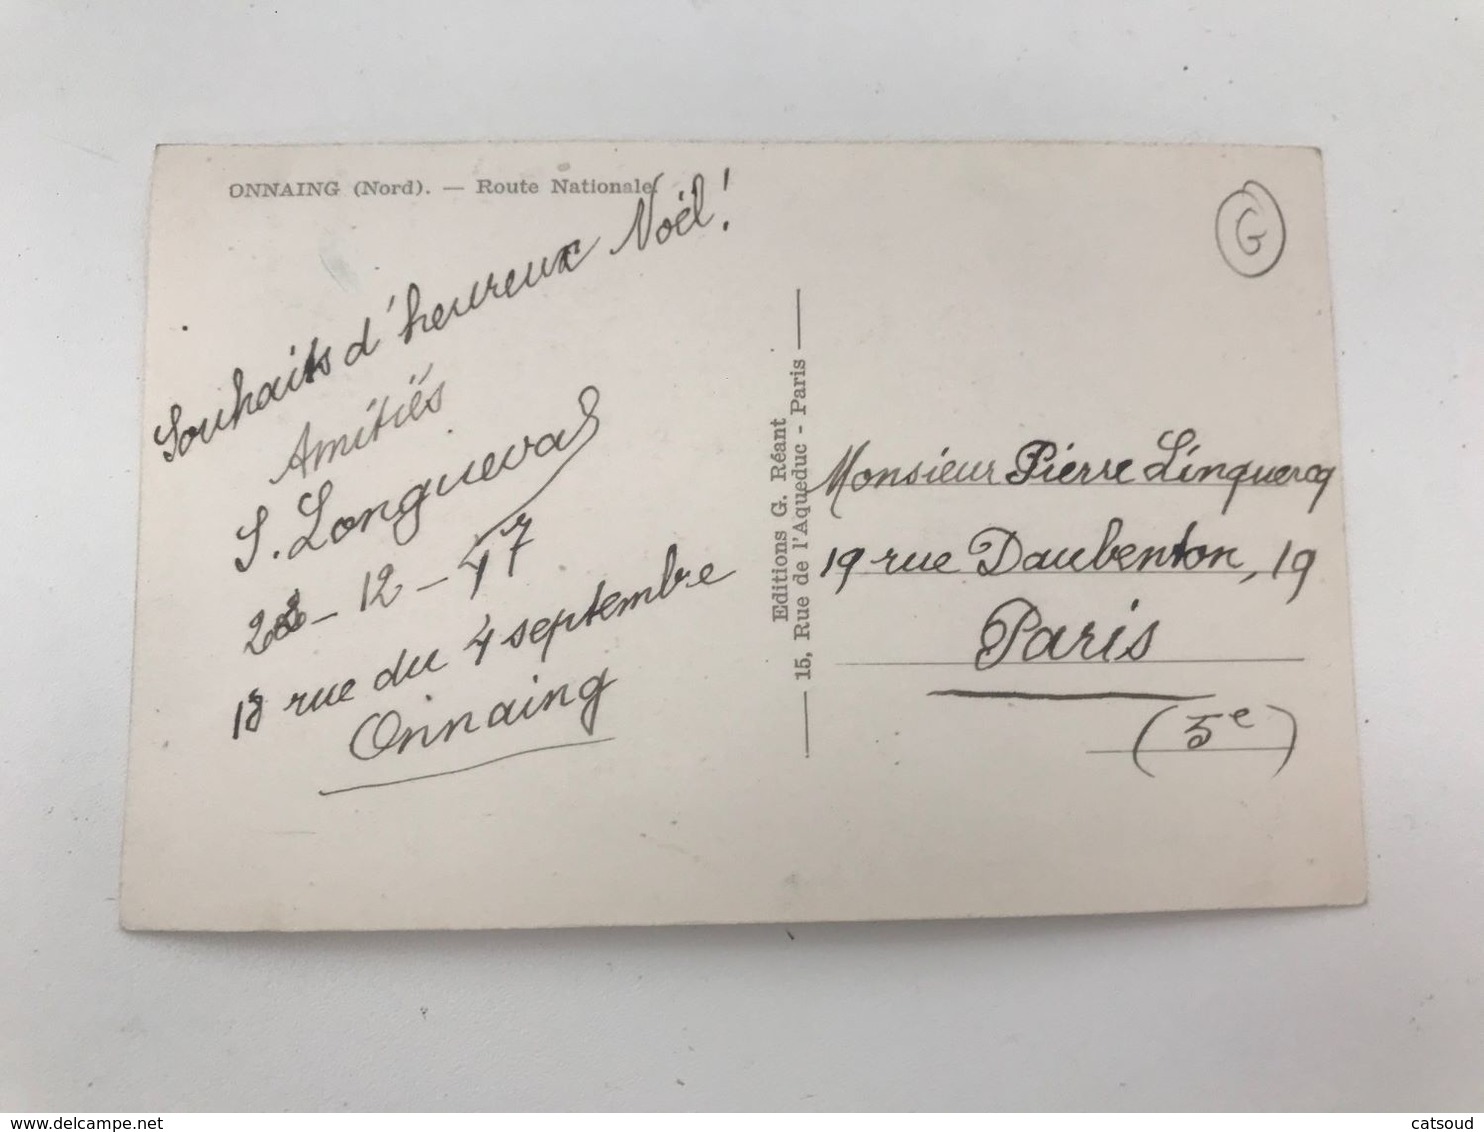 ONNAING (Nord). — Route Nationale.
Souhaits d'heureux Noël!
Amitiés
S. Longueval
12 - 47
rue du 4 septembre
Onnaing
Editions G. Réant
15, Rue de l'Aqueduc - Paris
G
Monsieur Pierre Linquercq
19 rue Daubenton, 19
Paris
(5e)
delcampe.net
catsoud